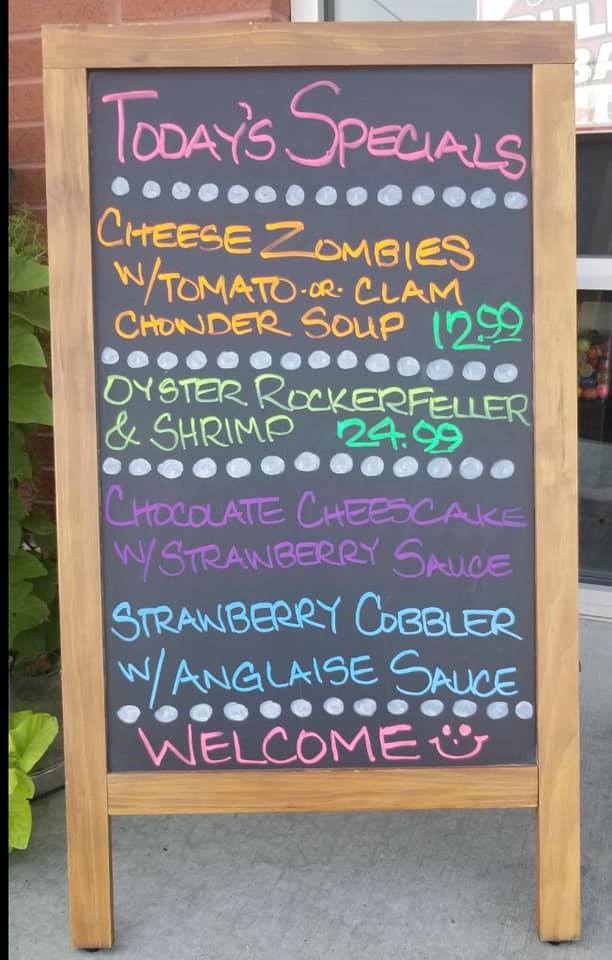 TODAY'S SPECIALS
CHEESE ZOMBIES
W/TOMATO-OR-CLAM
CHOWDER SOUP 12.99
OYSTER ROCKERFELLER
& SHRIMP 24.99
CHOCOLATE CHEESCAKE
W/STRAWBERRY SAUCE
STRAWBERRY COBBLER
W/ANGLAISE SAUCE
WELCOME